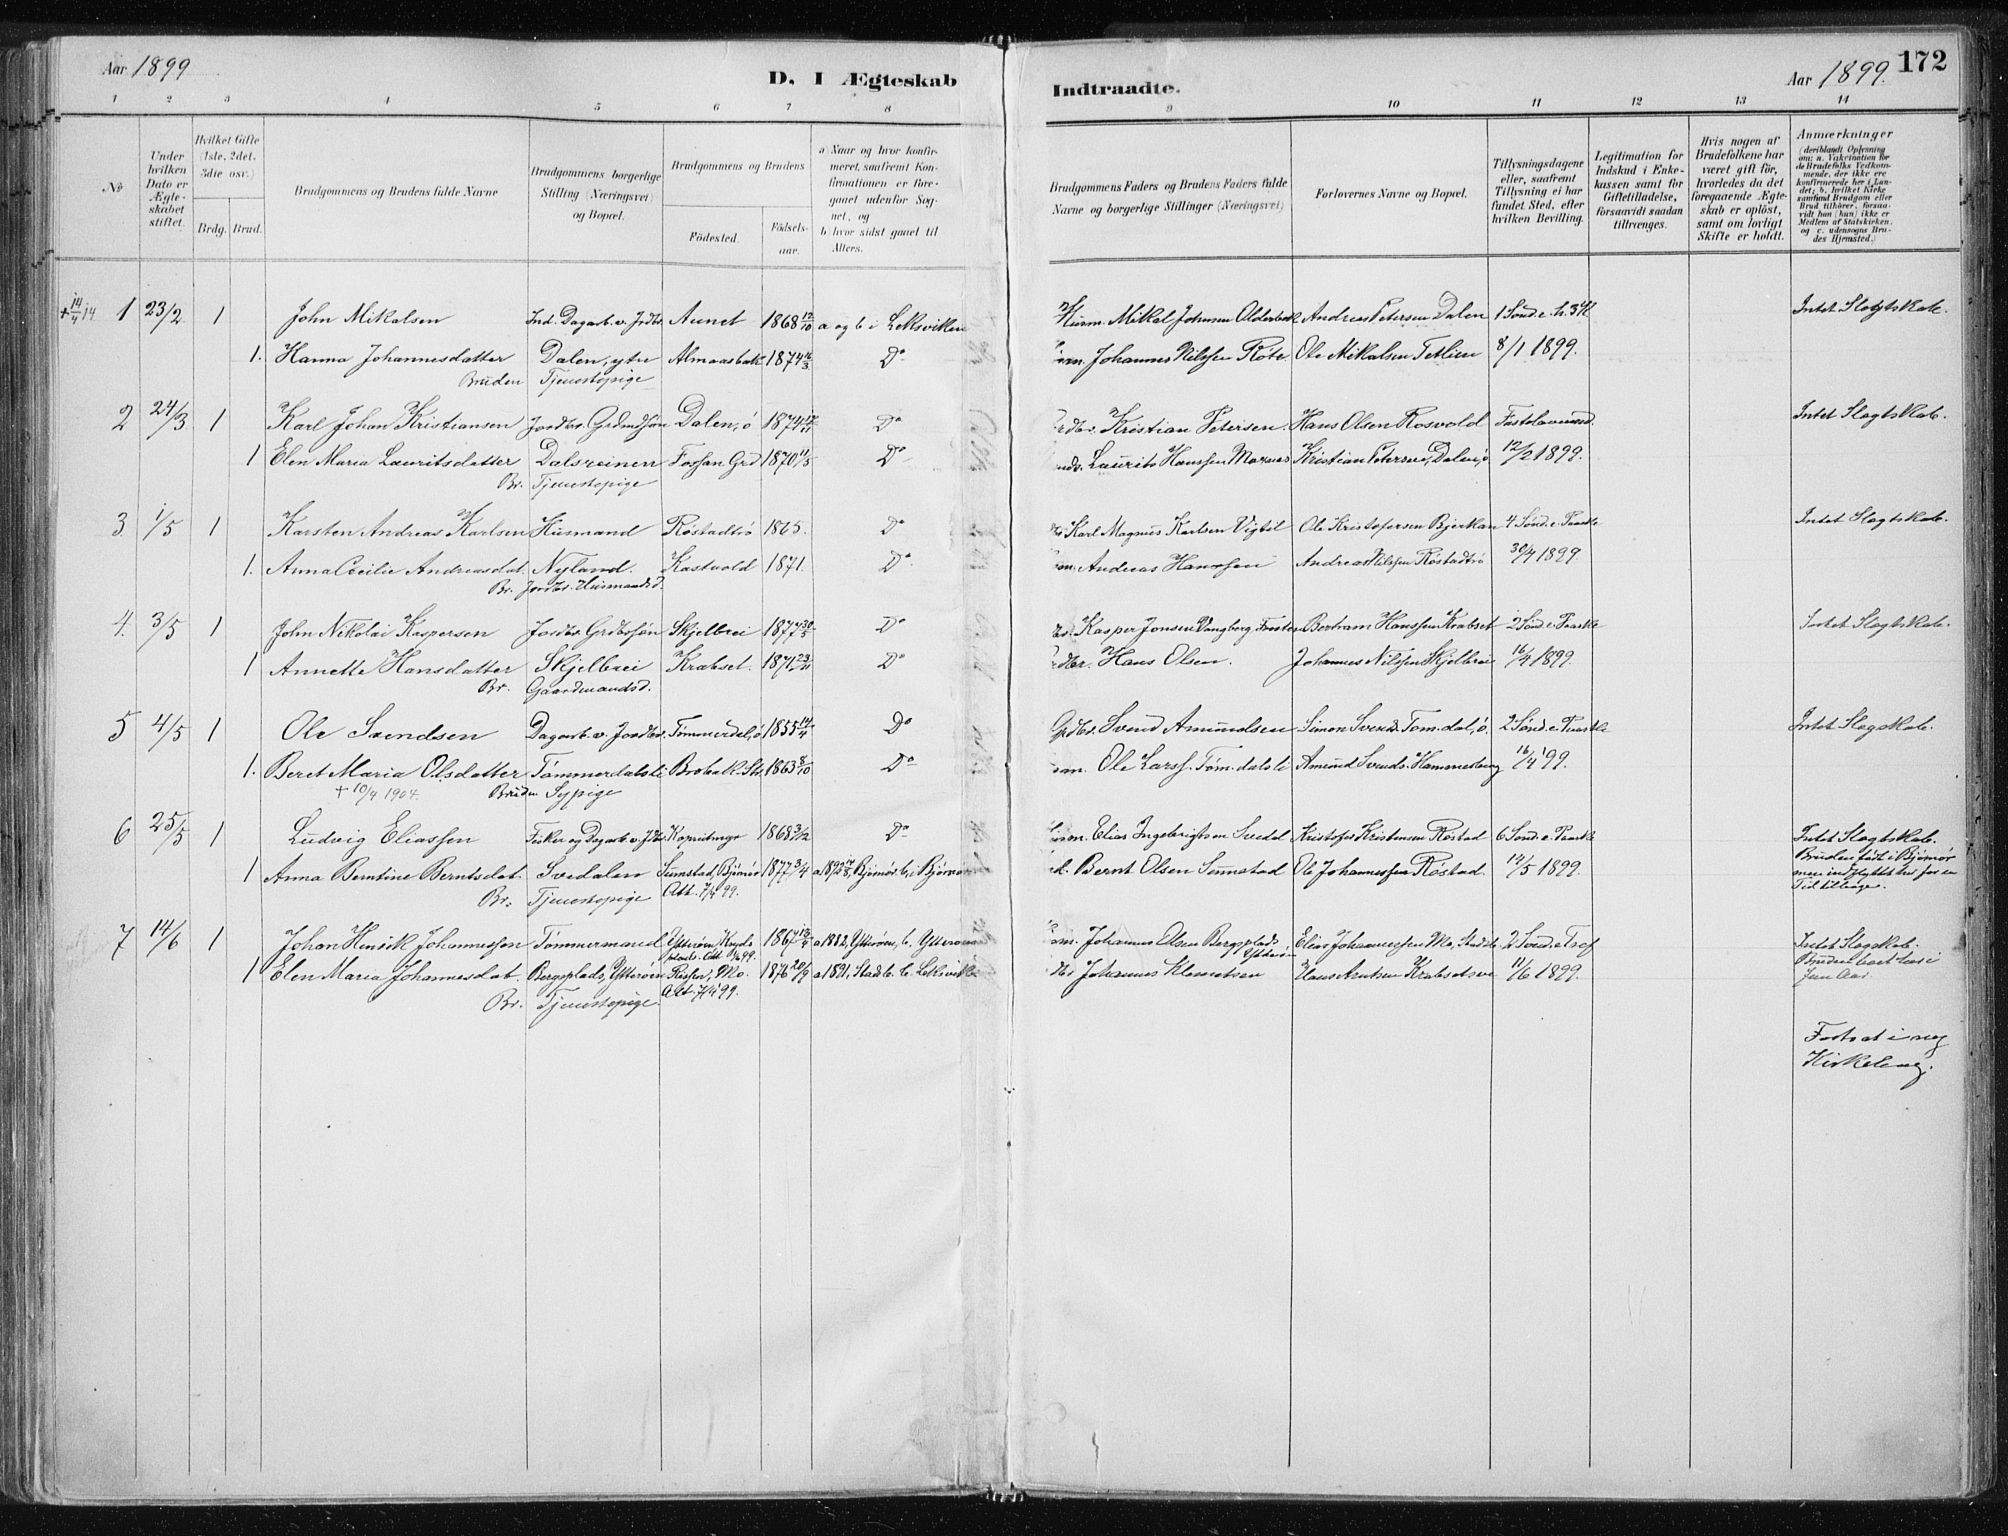 Aar 1899
D. I Ægteskab
Indtraadte.
Aar 1899.
172
1 2 3 4 5 6 7 8 9 10 11 12 13 14
No
Under hvilken Dato er Ægteskabet stiftet.
Hvilket Gifte (1ste, 2det, 3die osv.)
Brdg. Brud.
Brudgommens og Brudens fulde Navne
Brudgommens borgerlige Stilling (Næringsvei) og Bopæl.
Brudgommens og Brudens
Fødested.
Fødselsaar.
a) Naar og hvor konfirmeret, saafremt Konfirmationen er foregaaet udenfor Sognet, og
b) hvor sidst gaaet til Alters.
Brudgommens Faders og Brudens Faders fulde Navne og borgerlige Stillinger (Næringsvei)
Forlovernes Navne og Bopæl.
Tillysningsdagene eller, saafremt Tillysning ei har fundet Sted, efter hvilken Bevilling.
Legitimation for Indskud i Enkekassen samt for Giftetilladelse, forsaavidt saadan tiltrænges.
Hvis nogen af Brudefolkene har været gift før, hvorledes da det foregaaende Ægteskab er opløst, samt om lovligt Skifte er holdt.
Anmærkninger
(deriblandt Oplysning om: a. Vakcination for de Brudefolks Vedkommende, der ikke ere konfirmerede her i Landet; b. hvilket Kirkesamfund Brudgom eller Brud tilhører, forsaavidt han (hun) ikke er Medlem af Statskirken, og c. udensogns Brudes Hjemsted.)
1 23/2 1 John Mikalsen Ind. Dagarb. v. Jordbr. Aunet 1868 12/10 a og b i Leksviken Husm. Mikal Johnsen Olderbak Andreas Petersen Dalen 1 Sønd. e. h. 3 K Intet Slagtskab.
1. Hanna Johannesdatter Dalen, ytre Almaasbak 1874 16/3 Do Johannes Nilssen Røte Ole Mikalsen Tetlien 8/1 1899.
Bruden Tjenestepige
2 24/3 1 Karl Johan Kristiansen Jordbr. Grdmdsøn Dalen, ø 1874 Do Kristian Petersen Hans Olsen Rosvold Fastelavnssd. Intet Slagtskab.
1 Elen Maria Lauritsdatter Dalsreinen Fossan Grd 1870 11/5 Do Laurits Hanssen Moxnes Kristian Petersen, Dalen, ø 12/2 1899.
Br. Tjenestepige
3. 1/5 1 Karsten Andreas Karlsen Husmand Røstadtrø 1865. Do Karl Magnus Karlsen Vigtil Ole Kristofersen Bjerkan 4 Sønd. e. Paaske Intet Slagtskab.
1. Anna Cecilie Andreasdat. Nyland. Kastvold 1871. Do Andreas Hanssen Andreas Nilssen Røstadtrø 30/4 1899
Br. Jordbr. Husmandsd.
4. 3/5 1 John Nikolai Kaspersen Jordbr. Grdbrsøn Skjelbrei 1877 30/5 Do Kasper Jonsen Vangberg, Frosten Bertram Hanssen Krabset 2 Sønd. e. Paaske Intet Slagtskab.
1 Annette Hansdatter Skjelbrei Krabset. 1871 23/11 Do Hans Olsen. Johannes Nilssen Skjelbrei 16/4 1899.
Br. Gaardmandsd.
5 4/5 1 Ole Svendsen Dagarb. v. Jordbr. Tømmerdal, ø 1855 14/4 Do Gdbr. Svend Amundsen Simon Svends. Tom. dal, ø. 2 Sønd. e. Paaske Intet Slagtskab.
1. Beret Maria Olsdatter Tømmerdalsli Brobak. Str. 1863 8/10 Do Ole Larss. Tøm. dalsli Amund Svends. Hammerberg 16/4 '99.
+ 10/4 1904. Bruden Sypige
6 25/5 1 Ludvig Eliassen Fisker og Dagarb. v. Jdbr. 1868 3/12 Do Elias Ingebrigtsen Svedal Kristofer Kristensen Røstad 6 Sønd. e. Paaske Intet Slagtskab.
1 Anna Berntine Berntsdat. Svedalen Sumstad, Bjørnør 1877 3/4 a 1892, Bjørnør. b, i Bjørnør Bernt Olsen Sumstad Ole Johannessen Røstad. 14/5 1899. Bruden født i Bjørnør men indflyttet her for en Tid tilbage.
Br. Tjenestepige Att. 7/4 99.
7 14/6 1 Johan Henrik Johannessen Tømmermand 1867 a 1882, Ytterøen, b, Ytterøen Johannes Olsen Bergsplads Ytterøen Elias Johannessen Mo, Stadsb. 2 Sønd. e. Tref Intet Slagskab.
1 Elen Maria Johannesdat. Bergsplads, Ytterøen Mo. 1876 20/9 a 1891, Stadsb. b. Leksviken Johannes Klemetsen Krabsetsve 11/6 1899. Bruden boet her i
Br. Tjenestepige. Att. 7/4 99.
Fortsat i nye
Kirkebog.